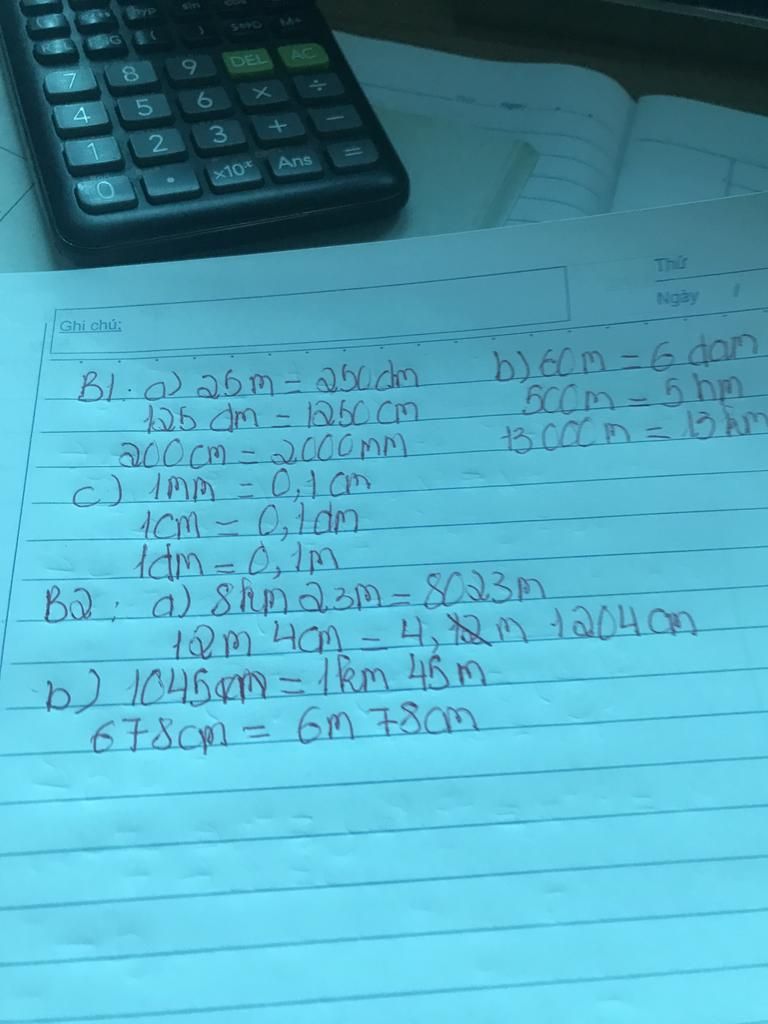 sin
S⇔D M+
( )
7 8 9 DEL AC
4 5 6 × ÷
1 2 3 + −
0 . ×10ˣ Ans =
Thứ
Ngày
Ghi chú:
B1. a) 25m = 250dm
125 dm = 1250cm
200cm = 2000mm
b) 60m = 6 dam
500m = 5 hm
13000m = 13km
c) 1mm = 0,1cm
1cm = 0,1dm
1dm = 0,1m
B2: a) 8km 23m = 8023m
12m 4cm = 4, m 1204cm
b) 1045m = 1km 45m
678cm = 6m 78cm